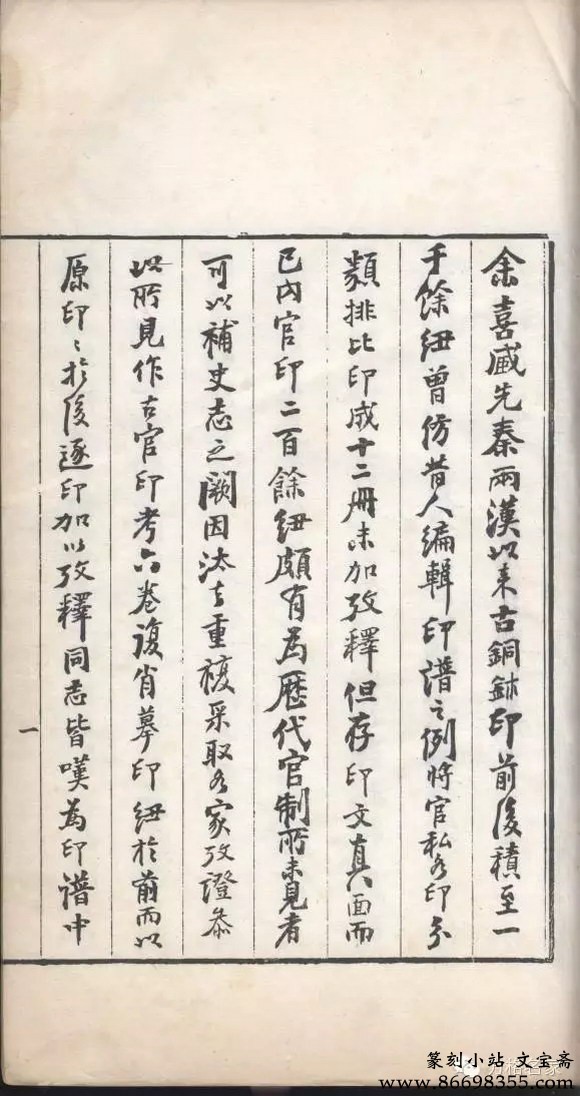 余喜藏先秦兩漢以来古銅鉥印前後積至一
千餘紐曾仿昔人編輯印譜之例將官私各印分
類排比印成十二冊未加攷釋但存印文真面而
已内官印二百餘紐頗有為歷代官制所未見者
可以補史志之闕因汰去重複采取各家攷證叅
以所見作古官印考六卷復肖摹印紐於前而以
原印〻於後逐印加以攷釋同志皆嘆為印譜中
一
篆刻小站 文宝斋
www.86698355.com